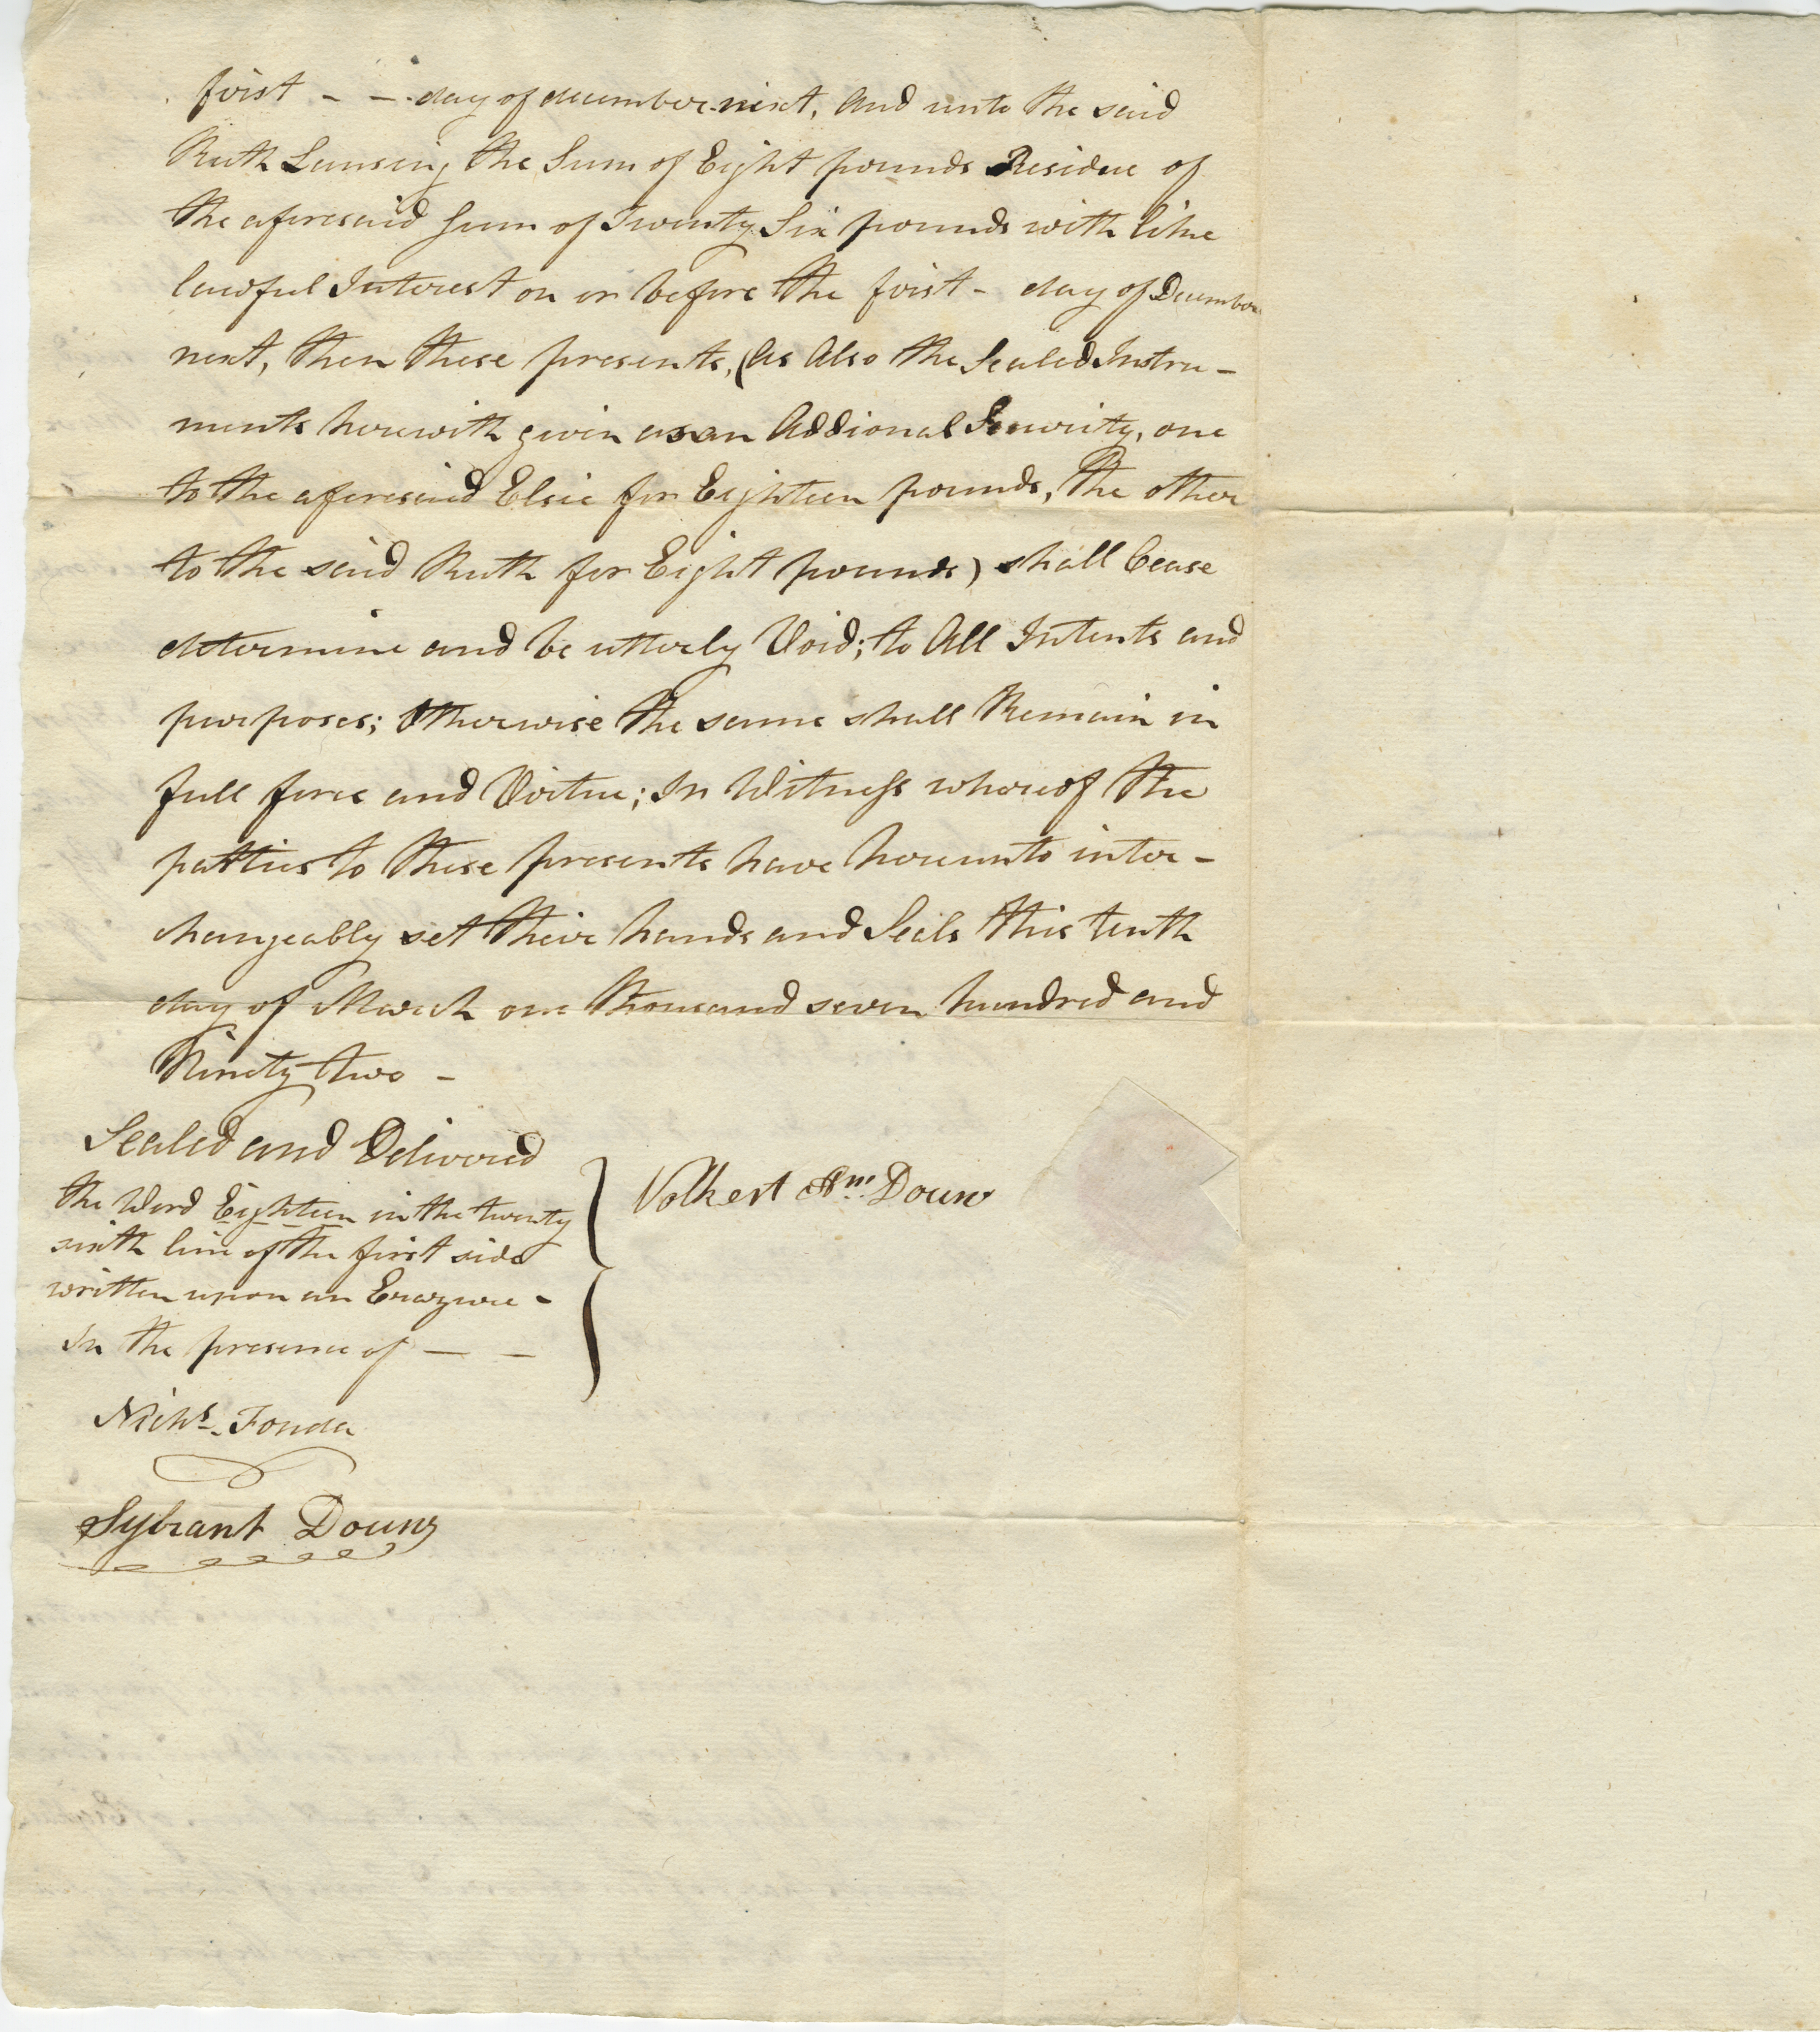 first - - day of december next, And unto the said
Ruth Lansing the Sum of Eight pounds Residue of
the aforesaid Sum of Twenty Six pounds with like
lawful Interest on or before the first - day of December
next, then these presents, (As Also the Sealed Instru-
ments herewith given as an Addional Security, one
to the aforesaid Elsie for Eighteen pounds, the other
to the said Ruth for Eight pounds) shall Cease
determine and be utterly Void; to All Intents and
purposes; Otherwise the same shall Remain in
full force and Virtue; In Witness whereof the
patties to these presents have hereunto inter-
changeably set their hands and Seals this tenth
day of March one thousand seven hundred and
Ninety two -
Sealed and Delivered
the Word Eighteen in the twenty
sixth line of the first side
written upon an Erazure -
In the presence of - -
Volkert Am Douw
Nichs. Fonda
Sybrant Douw